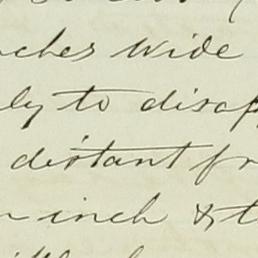 ches wide
ly to disap
distant fr
n inch & t